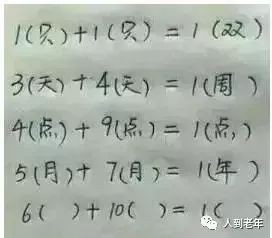 1(只)+1(只)=1(双)
3(天)+4(天)=1(周)
4(点)+9(点)=1(点)
5(月)+7(月)=1(年)
6( )+10( )=1( )
人到老年